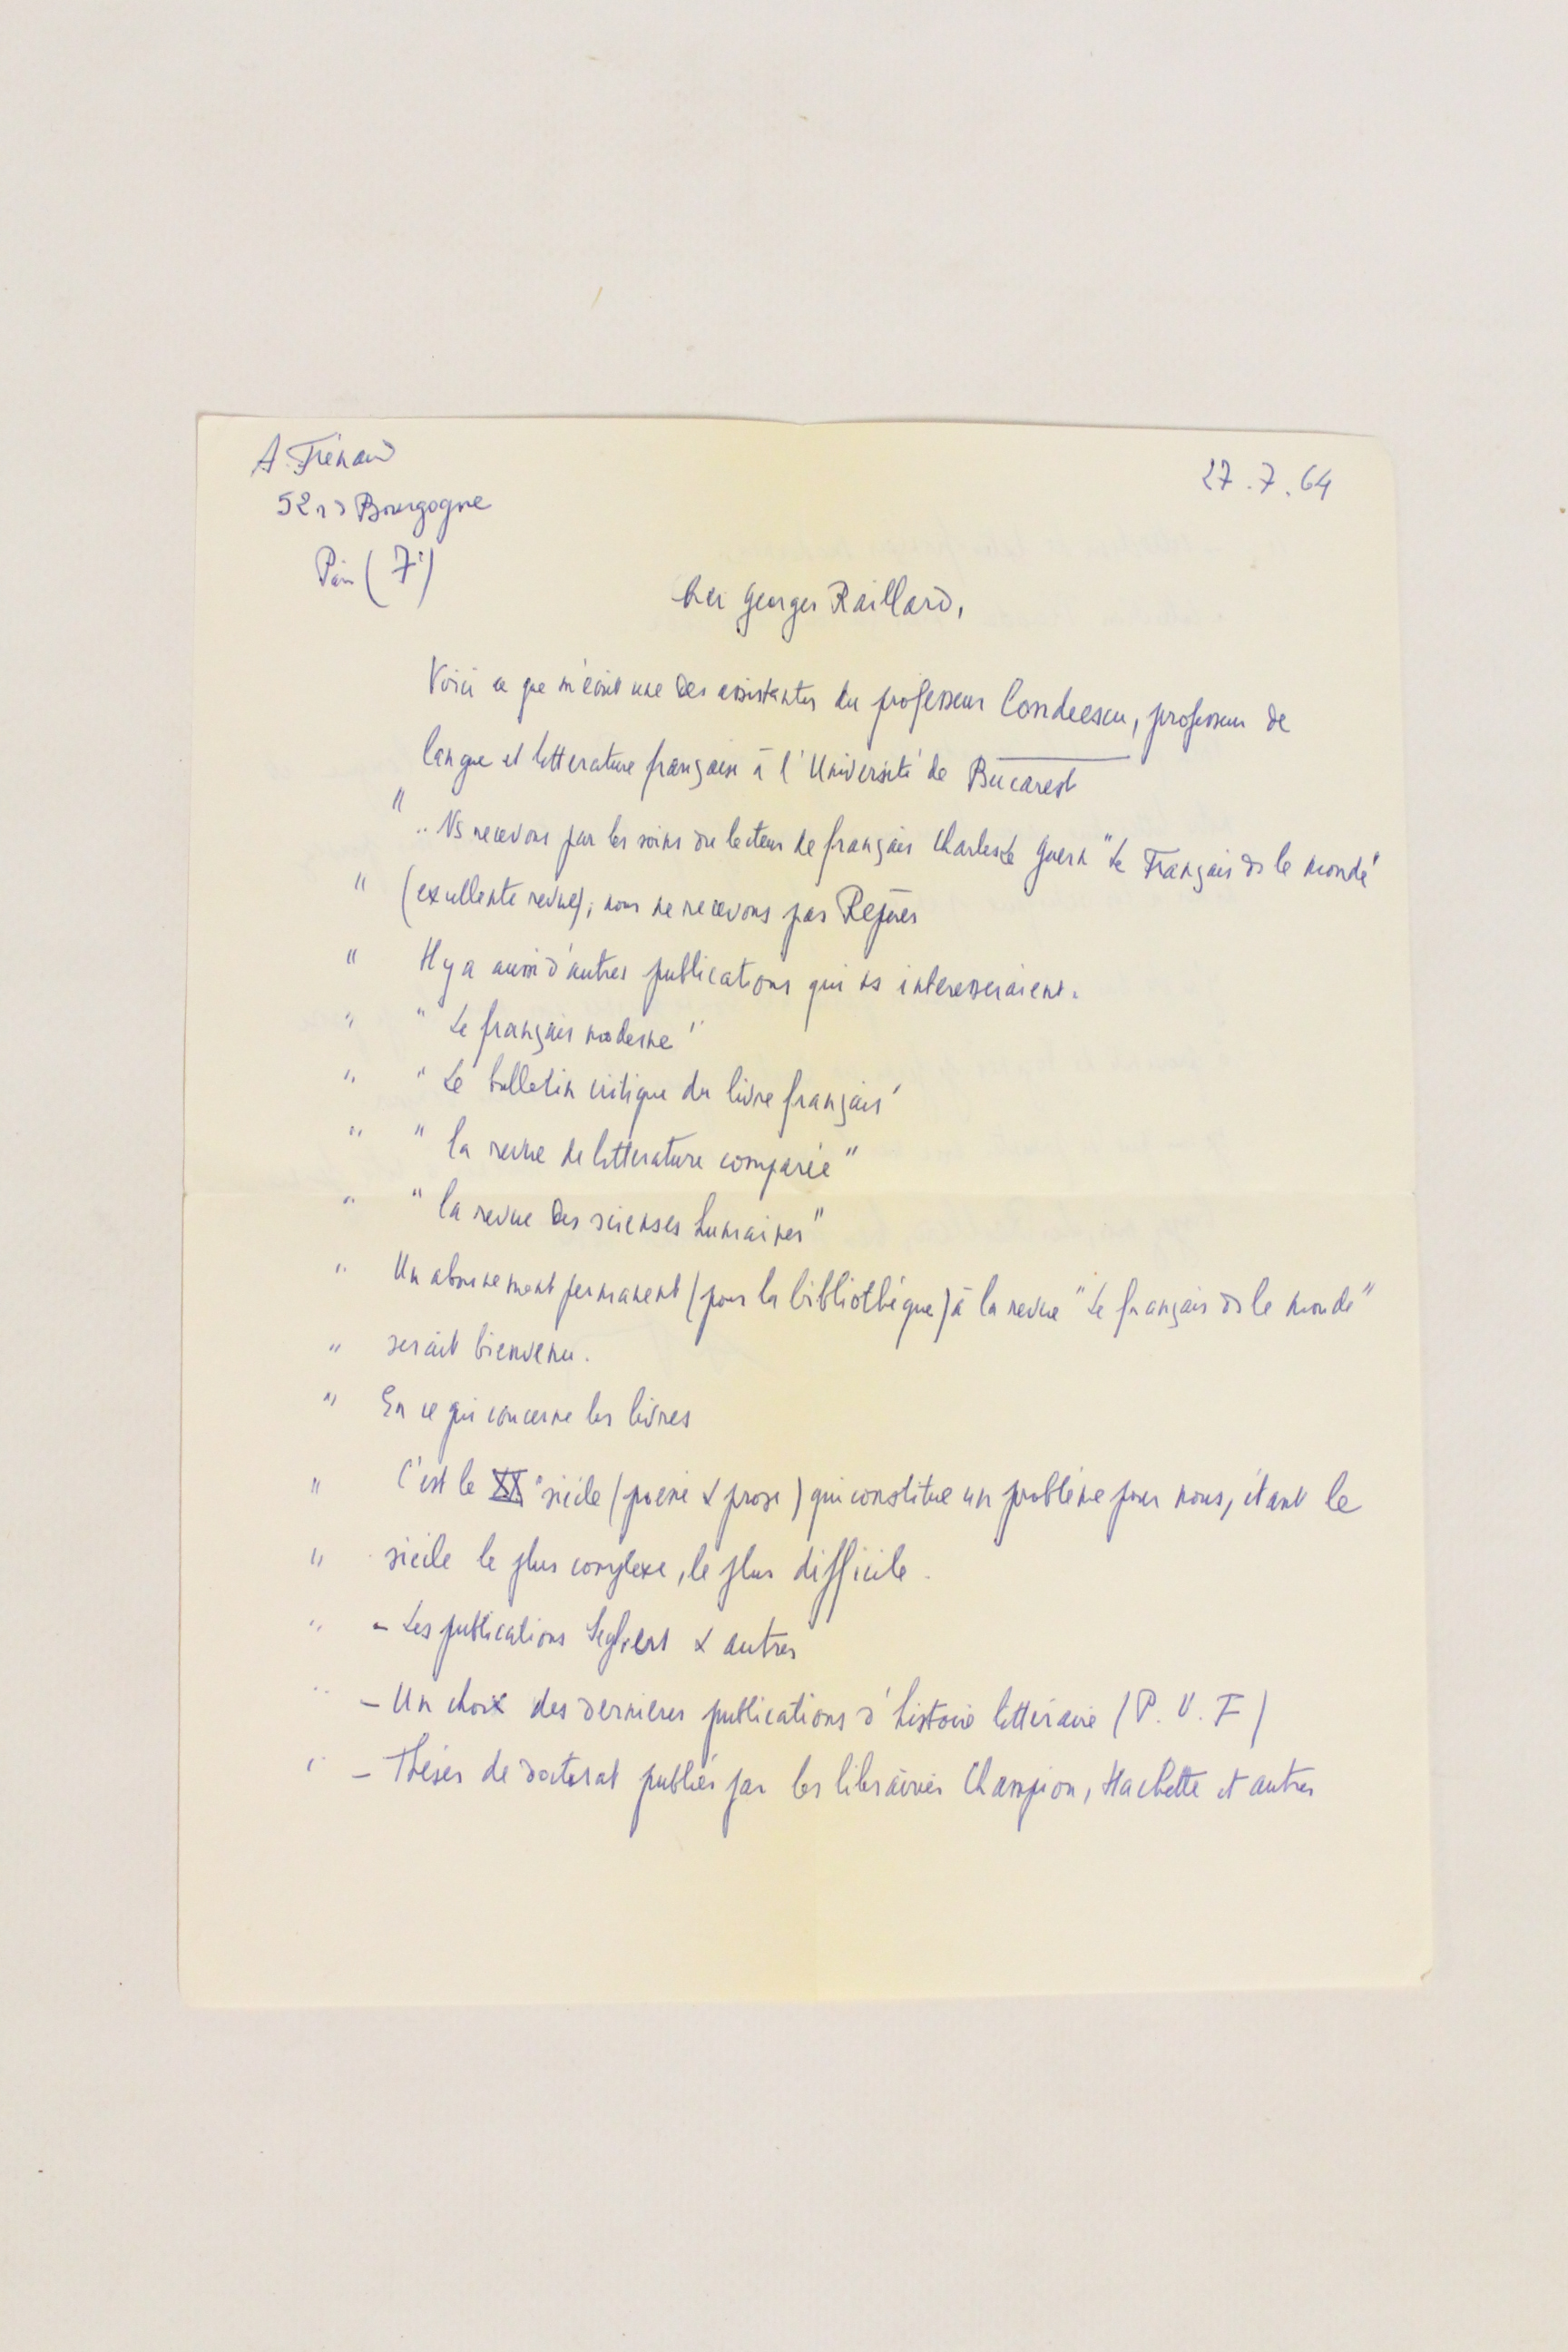 A. Frénaud
52 r de Bourgogne
Paris (7e)
27.7.64
Cher Georges Raillard,
Voici ce que m'écrit une des assistantes du professeur Condeescu, professeur de
langue et litterature française à l'Université de Bucarest
" .. Ns recevons par les soins du lecteur de français Charles Le Guern "Le Français ds le monde"
" (excellente revue); nous ne recevons pas Repères
" Il y a aussi d'autres publications qui ns interesseraient.
" " Le français moderne "
" " Le bulletin critique du livre français "
" " la revue de litterature comparée "
" " la revue des scienses humaines "
" Un abonnement permanent (pour la bibliothèque) à la revue " Le français ds le monde "
" serait bienvenu.
" En ce qui concerne les livres
" C'est le XXe siècle (poésie & prose) qui constitue un problème pour nous, étant le
" siècle le plus complexe, le plus difficile.
" - Les publications Seghers & autres
" - Un choix des dernières publications d'histoire littéraire (P.U.F)
" - Thèses de doctorat publiés par les librairies Champion, Hachette et autres